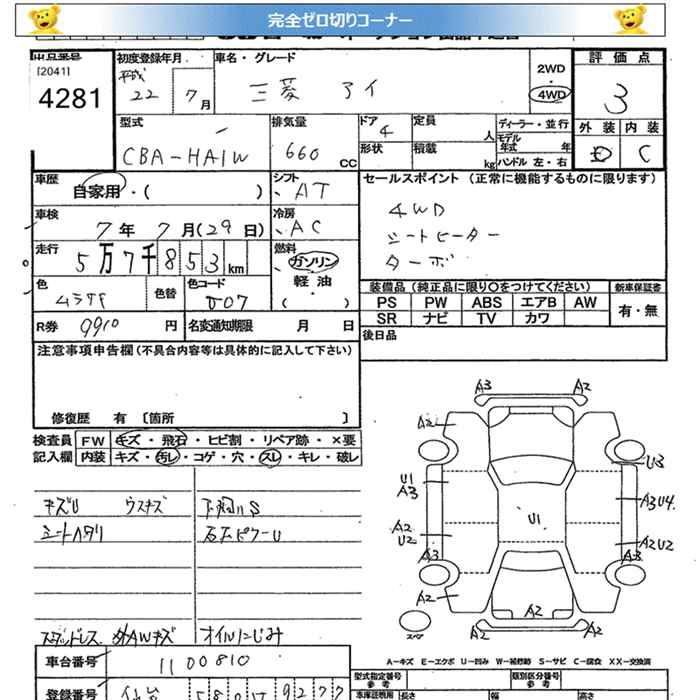 完全ゼロ切りコーナー
出品番号
[2041]
4281
初度登録年月
平成
22 7月
車名・グレード
三菱 アイ
2WD
・
4WD
評価点
3
外装 内装
D C
型式
CBA-HA1W
排気量
660 CC
ドア
4
形状
定員
人
積載
kg
ディーラー・並行
モデル
年式 年
ハンドル 左・右
車歴
自家用・( )
シフト
AT
車検
7年 7月(29日)
冷房
AC
走行
5万7千853km
燃料
ガソリン
・
軽油
・
( )
色
ムラサキ
色替
色コード
R券 9910 円
名変通知期限 月 日
セールスポイント (正常に機能するものに限ります)
4WD
シートヒーター
ターボ
装備品(純正品に限り〇をつけてください)
PS PW ABS エアB AW
SR ナビ TV カワ
新車保証書
有・無
後日品
注意事項申告欄(不具合内容等は具体的に記入して下さい)
修復歴 有 〔箇所 〕
検査員
記入欄
FW キズ・飛石・ヒビ割・リペア跡・×要
内装 キズ・汚レ・コゲ・穴・スレ・キレ・破レ
キズU ウスキズ 下廻りS
シートヘタリ
スタッドレス 外AWキズ オイルにじみ
A3 A2
A2
U3
U1
A3
A3U4
U1
A2
U2
A2U2
A3 A3
A2 A2 A2
スペア
A2 A2
A-キズ E-エクボ U-凹み W-補修跡 S-サビ C-腐食 XX-交換済
車台番号
1100810
登録番号
仙台 580 9277
型式指定番号
参考
類別区分番号
参考
車庫証明用 長さ 幅 高さ